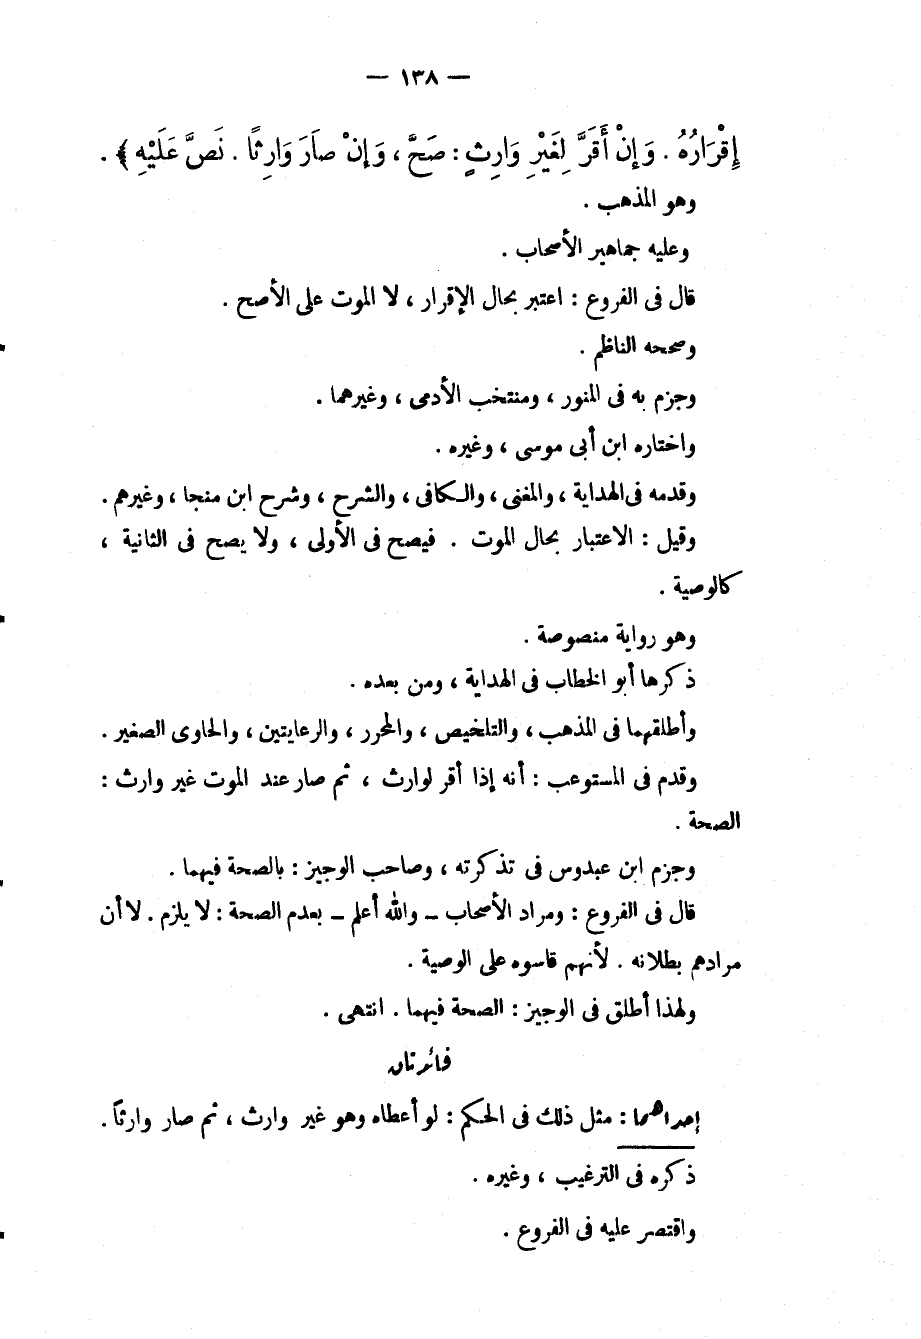 — ١٣٨ —
إِقْرَارُهُ . وَإِنْ أَقَرَّ لِغَيْرِ وَارِثٍ : صَحَّ ، وَإِنْ صَارَ وَارِثًا . نَصَّ عَلَيْهِ ﴾ .
وهو المذهب .
وعليه جماهير الأصحاب .
قال فى الفروع : اعتبر بحال الإقرار ، لا الموت على الأصح .
وصححه الناظم .
وجزم به فى المنور ، ومنتخب الأدمى ، وغيرهما .
واختاره ابن أبى موسى ، وغيره .
وقدمه فى الهداية ، والمغنى ، والكافى ، والشرح ، وشرح ابن منجا ، وغيرهم .
وقيل : الاعتبار بحال الموت . فيصح فى الأولى ، ولا يصح فى الثانية ،
كالوصية .
وهو رواية منصوصة .
ذكرها أبو الخطاب فى الهداية ، ومن بعده .
وأطلقهما فى المذهب ، والتلخيص ، والمحرر ، والرعايتين ، والحاوى الصغير .
وقدم فى المستوعب : أنه إذا أقر لوارث ، ثم صار عند الموت غير وارث :
الصحة .
وجزم ابن عبدوس فى تذكرته ، وصاحب الوجيز : بالصحة فيهما .
قال فى الفروع : ومراد الأصحاب – والله أعلم – بعدم الصحة : لا يلزم . لا أن
مرادهم بطلانه . لأنهم قاسوه على الوصية .
ولهذا أطلق فى الوجيز : الصحة فيهما . انتهى .
فائدتان
إحداهما : مثل ذلك فى الحكم : لو أعطاه وهو غير وارث ، ثم صار وارثاً .
ذكره فى الترغيب ، وغيره .
واقتصر عليه فى الفروع .